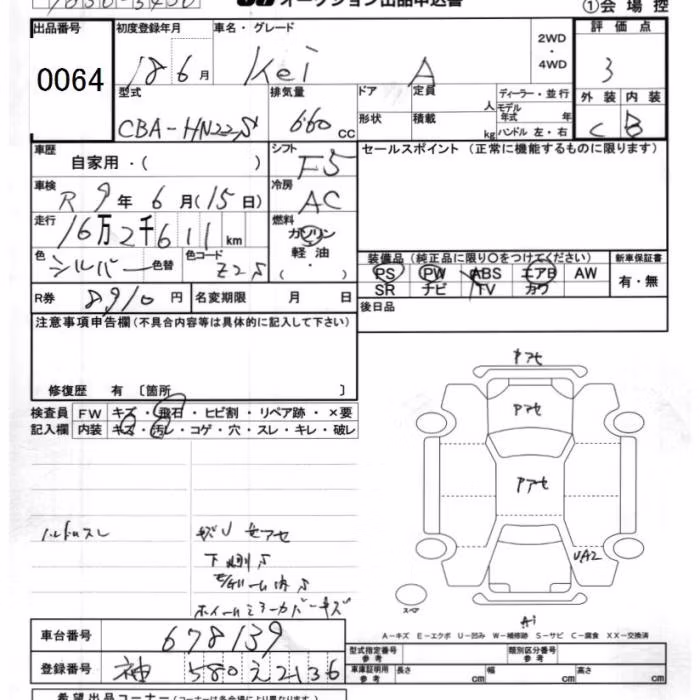 オークション出品申込書
①会場控
出品番号
0064
初度登録年月
18 6月
車名・グレード
Kei A
2WD
・
4WD
評価点
3
型式
CBA-HN22S
排気量
660 cc
ドア
定員 人
形状
積載 kg
ディーラー・並行
モデル年式 年
ハンドル 左・右
外装 内装
C B
車歴
自家用・( )
シフト
F5
セールスポイント (正常に機能するものに限ります)
車検
R 9年 6月(15日)
冷房
AC
走行
16万2千611 km
燃料
ガソリン
軽油
( ・ )
色
シルバー 色替
色コード
Z2S
装備品 (純正品に限り○をつけてください)
新車保証書
PS PW ABS エアB AW
SR ナビ TV カワ
有・無
R券 8910円
名変期限 月 日
後日品
注意事項申告欄 (不具合内容等は具体的に記入して下さい)
修復歴 有 〔箇所 〕
検査員記入欄
FW キズ・飛石・ヒビ割・リペア跡・×要
内装 キズ・汚レ・コゲ・穴・スレ・キレ・破レ
ハンドルスレ
キズU 色アセ
下廻りS
ホイールミラーカバーキズ
アアセ
アアセ
アアセ
UA2
スペア
A1
A-キズ E-エクボ U-凹み W-補修跡 S-サビ C-腐食 XX-交換済
車台番号
678139
登録番号
神 580 え 2136
型式指定番号
参考
類別区分番号
参考
車庫証明用
参考
長さ cm 幅 cm 高さ cm
希望出品コーナー (コーナーは各会場により異なります)